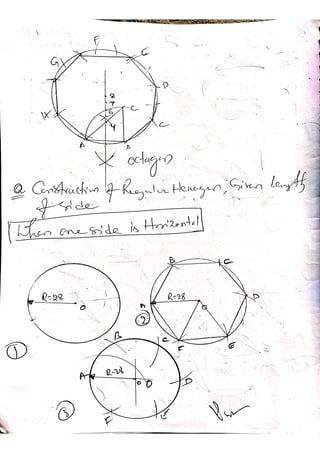 F
G
G
D
8
7
6
C
4
H
C
A
B
octagon
Q Construction of Regular Hexagon, Given Length
of side
When one side is Horizontal
R-28
O
①
B
C
A
R-28
O
D
②
F
E
B
C
A
R-28
O
D
③
F
E